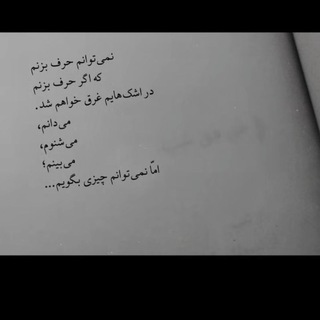 نمی‌توانم حرف بزنم
که اگر حرف بزنم
در اشک‌هایم غرق خواهم شد.
می‌دانم،
می‌شنوم،
می‌بینم؛
امّا نمی‌توانم چیزی بگویم...